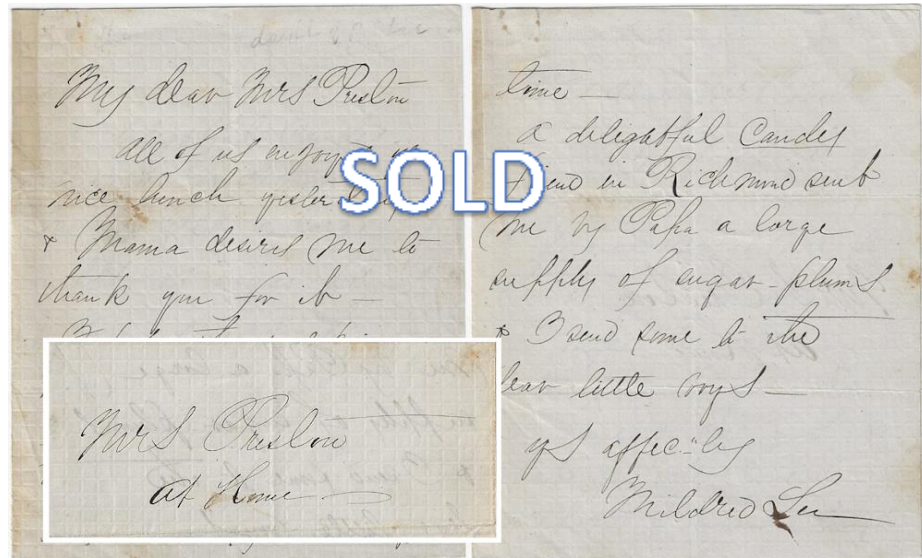 My dear Mrs Preston
all of us enjoyed
nice lunch
& Mama desires me to
thank you for it —
Mrs Preston
at Home
time —
A delightful Candy
friend in Richmond sent
me by Papa a large
supply of sugar-plums
& I send some to the
dear little boys —
yrs affec:ly
Mildred Lee
SOLD